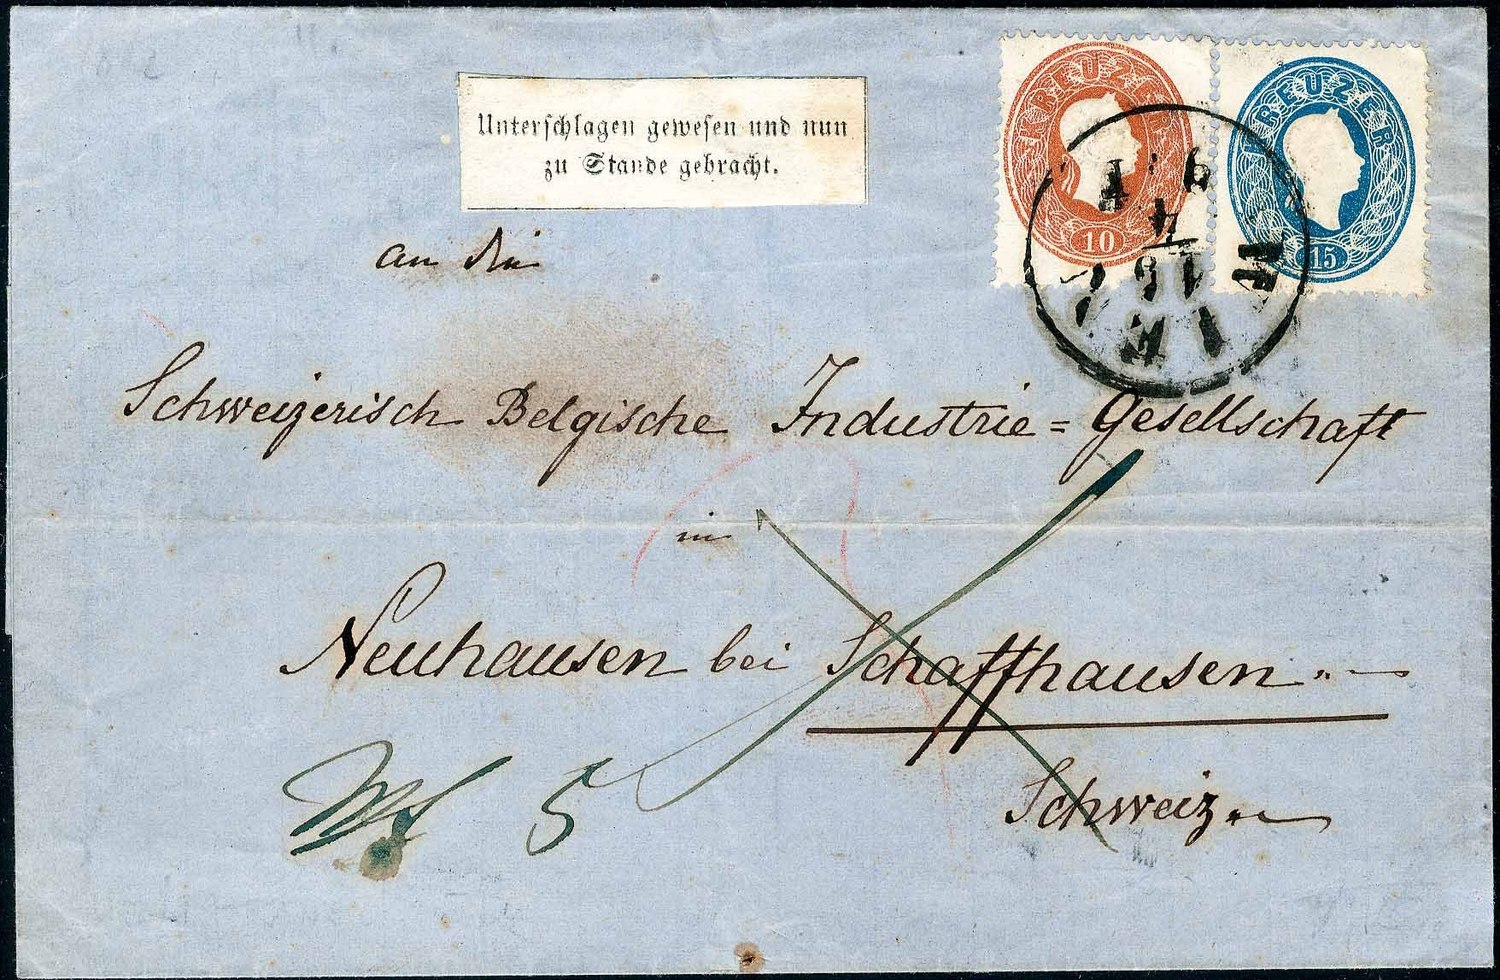 Unterschlagen gewesen und nun
zu Stande gebracht.
KREUZER
10
KREUZER
15
an die
Schweizerisch Belgische Industrie=Gesellschaft
in
Neuhausen bei Schaffhausen.
Schweiz.
5